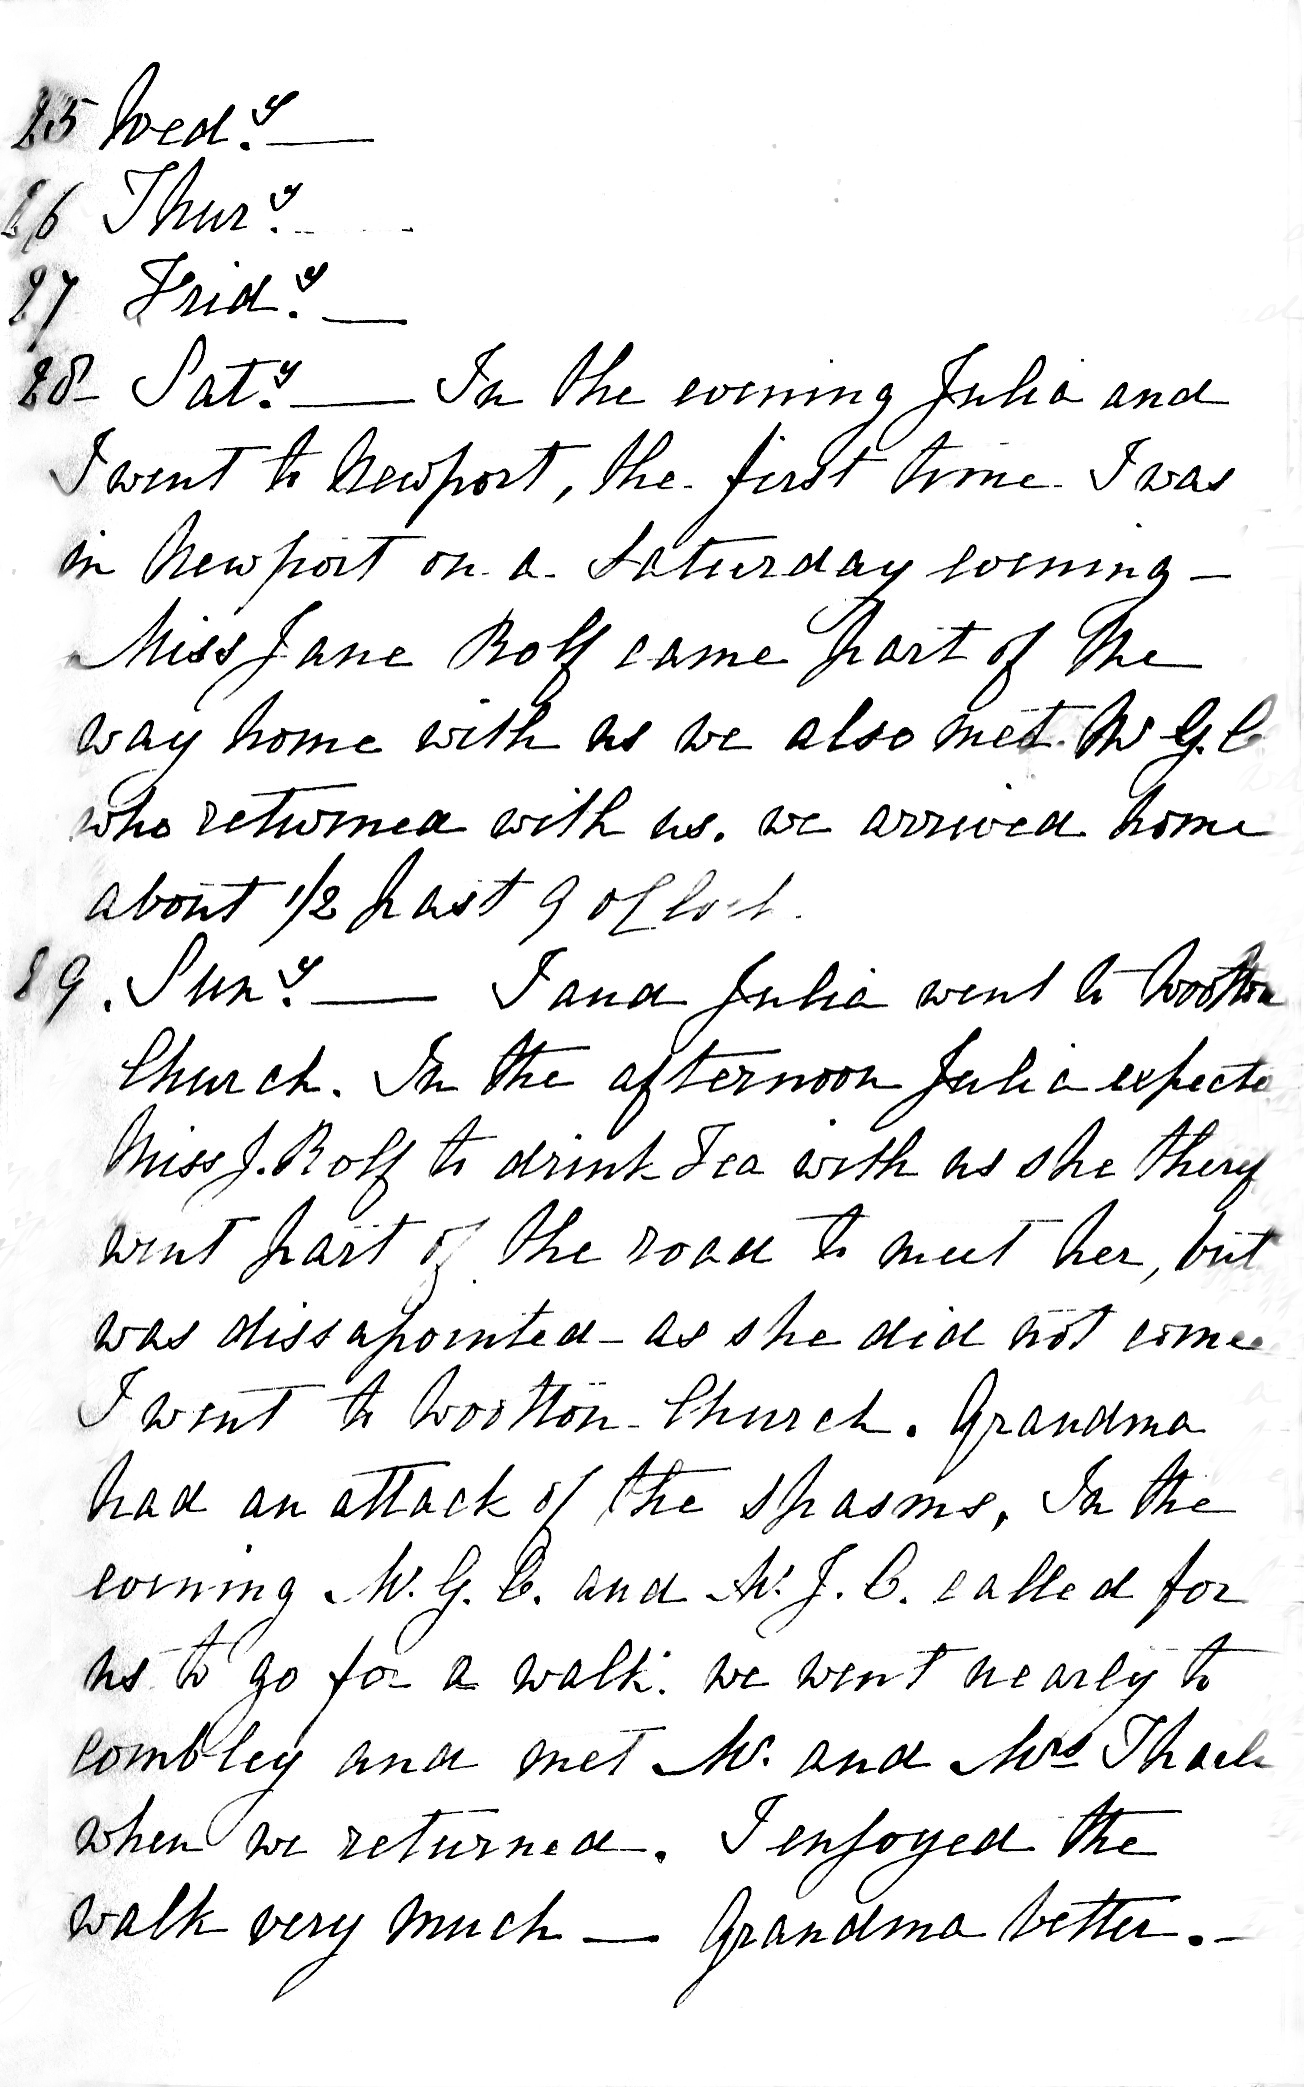 25 Wed.y —
26 Thur.y
27 Frid.y —
28 Sat.y — In the evening Julia and
I went to Newport, the first time I was
in Newport on a Saturday evening –
Miss Jane Rolf came part of the
way home with us we also met M G. C
who returned with us. we arrived home
about 1/2 past 9 oClock.
29. Sun.y — I and Julia went to Wootton
Church. In the afternoon Julia expecte
Miss J. Rolf to drink Tea with us she
went part of the road to meet her, but
was dissapointed – as she did not come
I went to Wootton Church. Grandma
had an attack of the spasms, In the
evening M. G. C. and M. J. C. called for
us to go for a walk. we went nearly to
Combley and met Mr. and Mrs
when we returned. I enjoyed the
walk very much — Grandma better. –